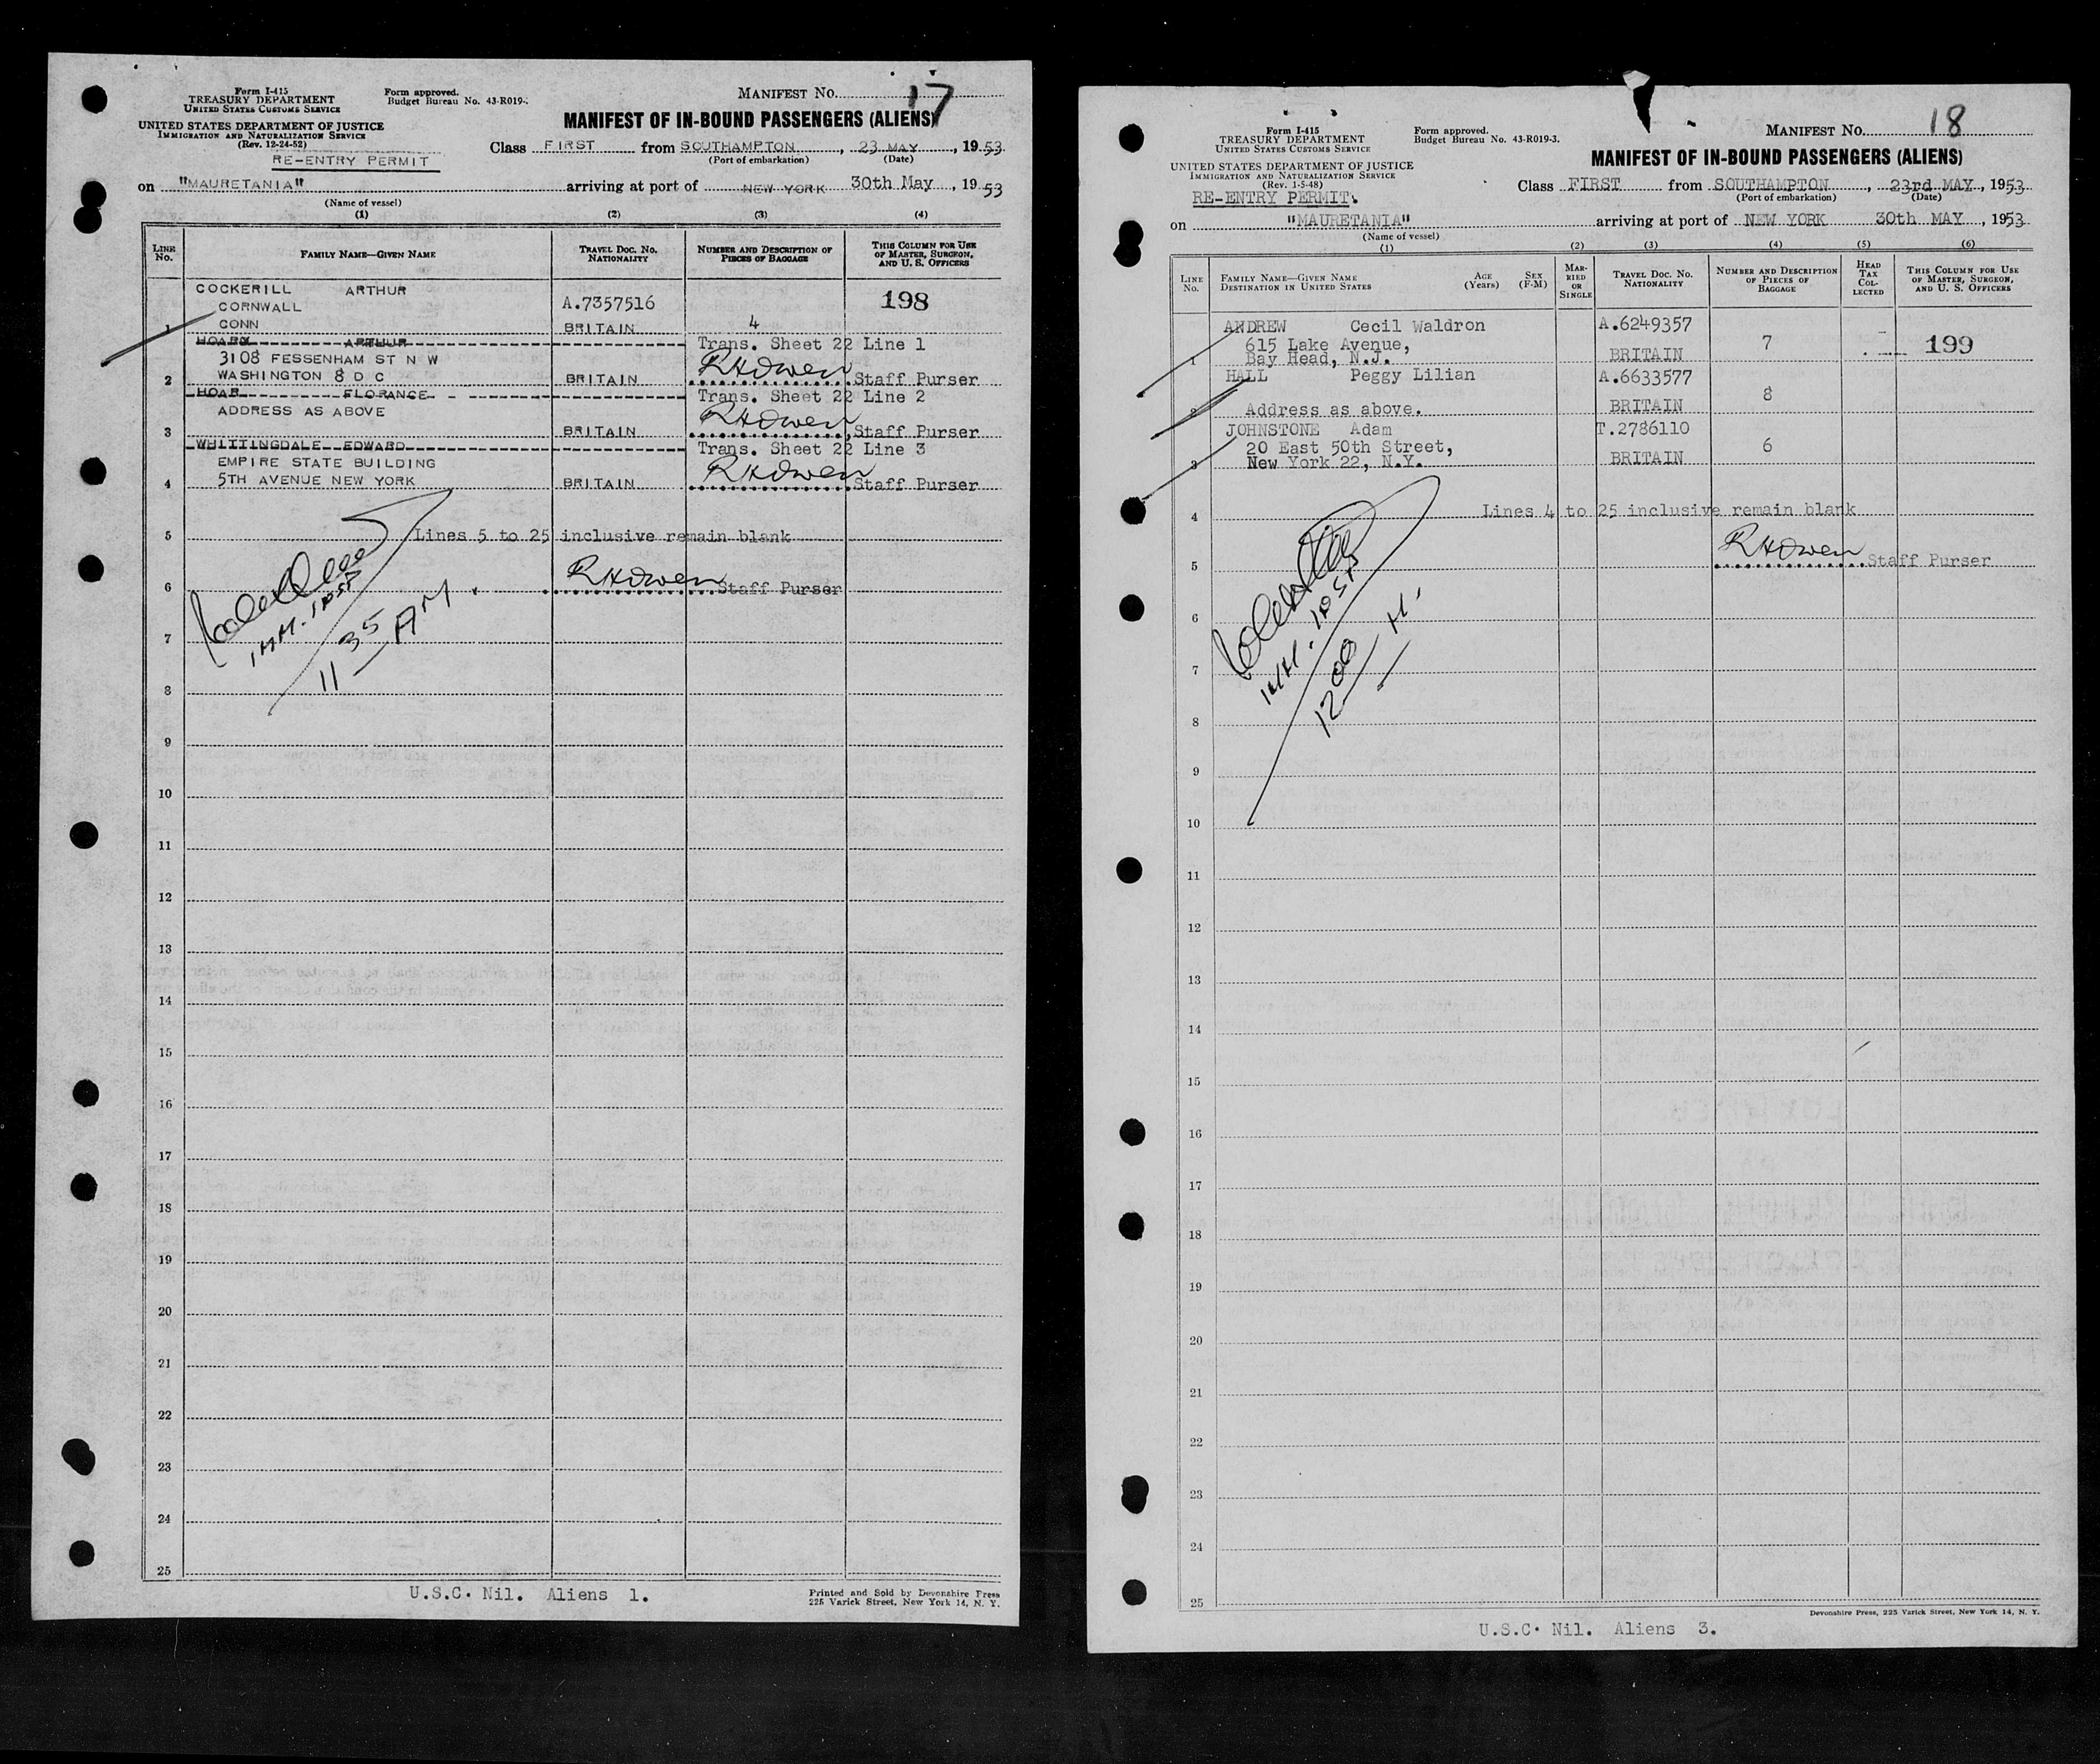 Form I-415
TREASURY DEPARTMENT
UNITED STATES CUSTOMS SERVICE
UNITED STATES DEPARTMENT OF JUSTICE
IMMIGRATION AND NATURALIZATION SERVICE
(Rev. 12-24-52)
RE-ENTRY PERMIT
Form approved.
Budget Bureau No. 43-R019-
MANIFEST No. 17
MANIFEST OF IN-BOUND PASSENGERS (ALIENS)
Class FIRST from SOUTHAMPTON, 23 MAY, 1953
(Port of embarkation) (Date)
on "MAURETANIA" arriving at port of NEW YORK 30th May, 1953
(Name of vessel)
(1) (2) (3) (4)
LINE No. FAMILY NAME—GIVEN NAME TRAVEL DOC. No. NATIONALITY NUMBER AND DESCRIPTION OF PIECES OF BAGGAGE THIS COLUMN FOR USE OF MASTER, SURGEON, AND U. S. OFFICERS
COCKERILL ARTHUR
CORNWALL A.7357516 198
1 CONN BRITAIN 4
HOARY ARTHUR Trans. Sheet 22 Line 1
3108 FESSENHAM ST N W
2 WASHINGTON 8 D C BRITAIN RHOwen Staff Purser
HOAR FLORANCE Trans. Sheet 22 Line 2
ADDRESS AS ABOVE
3 BRITAIN RHOwen Staff Purser
WHITTINGDALE EDWARD Trans. Sheet 22 Line 3
EMPIRE STATE BUILDING
4 5TH AVENUE NEW YORK BRITAIN RHOwen Staff Purser
5 Lines 5 to 25 inclusive remain blank
6 RHOwen Staff Purser
IMM. INSP
11 35 AM.
7
8
9
10
11
12
13
14
15
16
17
18
19
20
21
22
23
24
25
U.S.C. Nil. Aliens 1.
Printed and Sold by Devonshire Press
225 Varick Street, New York 14, N. Y.
Form I-415
TREASURY DEPARTMENT
UNITED STATES CUSTOMS SERVICE
UNITED STATES DEPARTMENT OF JUSTICE
IMMIGRATION AND NATURALIZATION SERVICE
(Rev. 1-5-48)
RE-ENTRY PERMIT.
Form approved.
Budget Bureau No. 43-R019-3.
MANIFEST No. 18
MANIFEST OF IN-BOUND PASSENGERS (ALIENS)
Class FIRST from SOUTHAMPTON, 23rd MAY, 1953
(Port of embarkation) (Date)
on "MAURETANIA" arriving at port of NEW YORK 30th MAY, 1953
(Name of vessel)
(1) (2) (3) (4) (5) (6)
LINE No. FAMILY NAME—GIVEN NAME DESTINATION IN UNITED STATES AGE (Years) SEX (F-M) MARRIED OR SINGLE TRAVEL DOC. No. NATIONALITY NUMBER AND DESCRIPTION OF PIECES OF BAGGAGE HEAD TAX COLLECTED THIS COLUMN FOR USE OF MASTER, SURGEON, AND U. S. OFFICERS
ANDREW Cecil Waldron A.6249357
615 Lake Avenue, 7 199
1 Bay Head, N.J. BRITAIN
HALL Peggy Lilian A.6633577
8
2 Address as above. BRITAIN
JOHNSTONE Adam T.2786110
20 East 50th Street, 6
3 New York 22, N.Y. BRITAIN
4 Lines 4 to 25 inclusive remain blank
5 RHOwen Staff Purser
6
IMM. INSP
12 00 M.
7
8
9
10
11
12
13
14
15
16
17
18
19
20
21
22
23
24
25
Devonshire Press, 225 Varick Street, New York 14, N. Y.
U.S.C. Nil. Aliens 3.